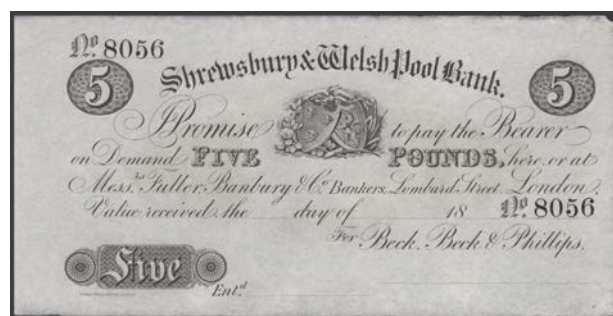 No. 8056
5 Shrewsbury & Welsh Pool Bank. 5
I Promise to pay the Bearer
on Demand FIVE POUNDS, here or at
Messrs. Fuller, Banbury & Co. Bankers, Lombard Street, London.
Value received the day of 18 No. 8056
For Beck, Beck & Phillips.
Five
Entd.